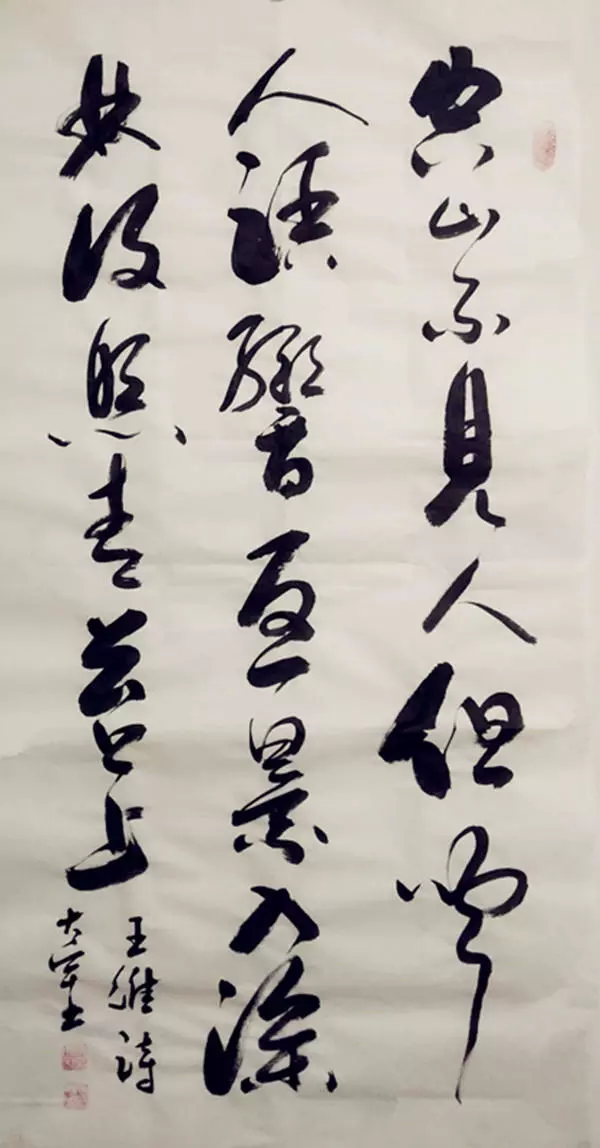 空山不見人但聞
人語響返景入深
林復照青苔上
王維詩
大軍書